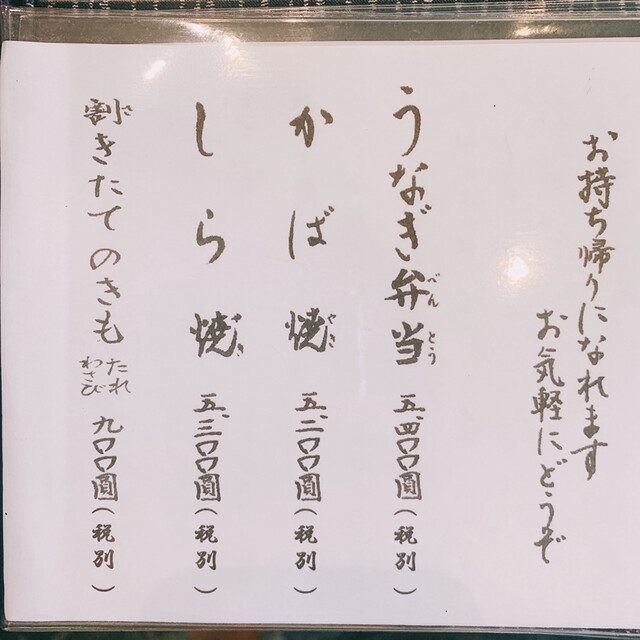 お持ち帰りになれます
お気軽にどうぞ
うなぎ弁当 べんとう 五、四〇〇圓(税別)
かば焼 やき 五、二〇〇圓(税別)
しら焼 やき 五、三〇〇圓(税別)
割きたてのきも さ たれ わさび 九〇〇圓(税別)